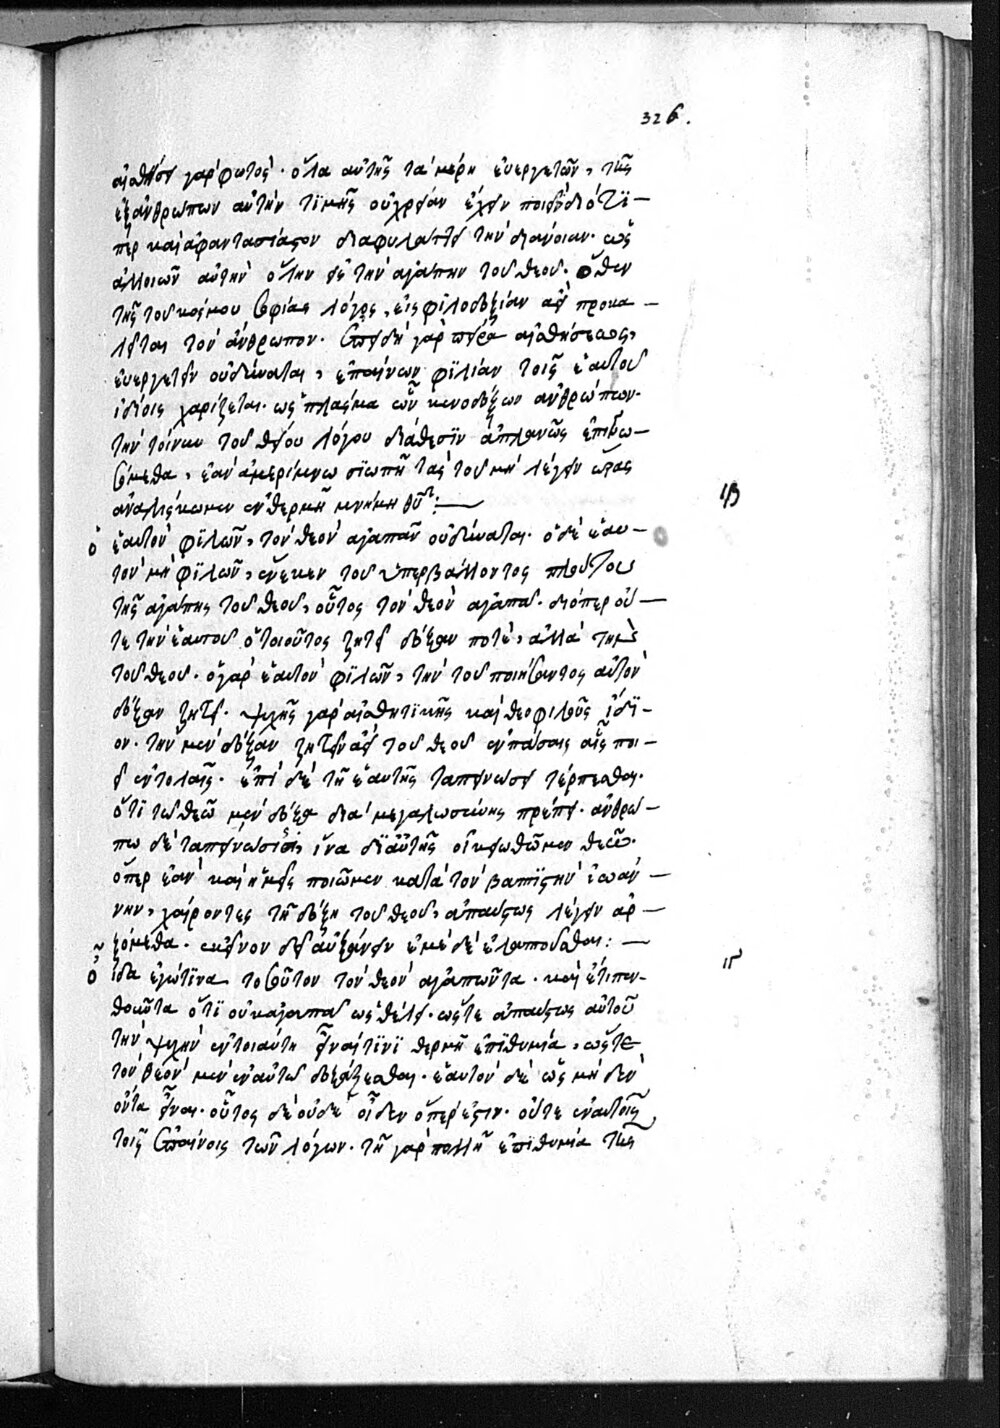 326.
αἰσθήσει γαρ φωτὸς· ὅλα αὐτῆς τὰ μέρη ἐνεργετῶν, τῆς
ἐξ ἀνθρώπων αὐτὴν τϊμῆς οὐ χρείαν ἔχειν ποιεῖ· διό τϊ—
περ καὶ ἀφαντασίαστον διαφυλάττει τὴν διάνοιαν· ὡς
ἀλλοιῶν αὐτὴν ὅλην εἰς τὴν ἀγάπην τοῦ θεοῦ. ὅθεν
τῆς τοῦ κόσμου σοφίας λόγος, εἰς φϊλοδοξίαν ἀεὶ προκα—
λεῖται τὸν ἄνθρωπον. ἐπειδὴ γὰρ πείρᾳ αἰσθήσεως,
εὐεργετεῖν οὐ δύναται, ἐπαίνων φϊλίαν τοῖς ἑαυτοῦ
ἰδίοις χαρίζεται· ὡς πλάσμα ὢν κενοδόξων ἀνθρώπων.
τὴν τοίνυν τοῦ θείου λόγου διάθεσϊν ἀπλανῶς ἐπιγνω—
σόμεθα, ἐὰν ἀμερίμνω σϊωπῆ τὰς τοῦ μὴ λέγειν ὥρας
ἀναλίσκωμεν ἐν θερμῆ μνήμη θυ:—
ιβ
ὁ ἑαυτὸν φϊλῶν, τὸν θεὸν ἀγαπᾶν οὐ δύναται. ὁ δὲ ἑαυ—
τὸν μὴ φϊλῶν, ἕνεκεν τοῦ ὑπερβάλλοντος πλούτου
τῆς ἀγάπης τοῦ θεοῦ, οὗτος τὸν θεὸν ἀγαπᾶ. διόπερ οὔ—
τε τὴν ἑαυτοῦ ὁ τοιοῦτος ζητεῖ δόξαν ποτέ, ἀλλὰ τὴν
τοῦ θεοῦ. ὁ γὰρ ἑαυτὸν φϊλῶν, τὴν τοῦ ποιήσαντος αὐτὸν
δόξαν ζητεῖ. ψυχῆς γὰρ αἰσθητϊκῆς καὶ θεοφιλοῦς ἴδϊ—
ον. τὴν μὲν δόξαν ζητεῖν ἀεὶ τοῦ θεοῦ ἐν πάσαις αἷς ποι—
εῖ ἐντολαῖς. ἐπὶ δὲ τῆ ἑαυτῆς ταπεινώσει τέρπεσθαι.
ὅτϊ τῶ θεῶ μὲν δόξα διὰ μεγαλωσύνης πρέπει. ἀνθρώ—
πω δὲ ταπείνωσις, ἵνα δϊ αὐτῆς οἰκειωθῶμεν θεῶ.
ὅπερ ἐὰν καὶ ἡμεῖς ποιῶμεν κατὰ τὸν βαπτϊστὴν ἰωάν—
νην, χαίροντες τῆ δόξη τοῦ θεοῦ, ἀπαύστως λέγειν ἀρ—
ξόμεθα. ἐκεῖνον δεῖ αὐξάνειν ἐμὲ δὲ ἐλαττοῦσθαι:—
ιγ
οἶδα ἐγώ τϊνα τοσοῦτον τὸν θεὸν ἀγαπῶντα. καὶ ἔτι πεν-
θοῦντα ὅτϊ οὐκ ἀγαπᾶ ὡς θέλει. ὥστε ἀπαύστως αὐτοῦ
τὴν ψυχὴν ἐν τοιαύτη εἶναί τϊνϊ θερμῆ ἐπϊθυμία, ὥστε
τὸν θεὸν μὲν ἐν αὐτῶ δοξάζεσθαι. ἑαυτὸν δὲ ὡς μὴ δὲν
ὄντα εἶναι. οὗτος δὲ οὐδὲ οἶδεν ὅπερ ἐστιν. οὔτε ἐν αὐτοῖς
τοῖς ἐπαίνοις τῶν λόγων. τῆ γὰρ πολλῆ ἐπϊθυμία τῆς